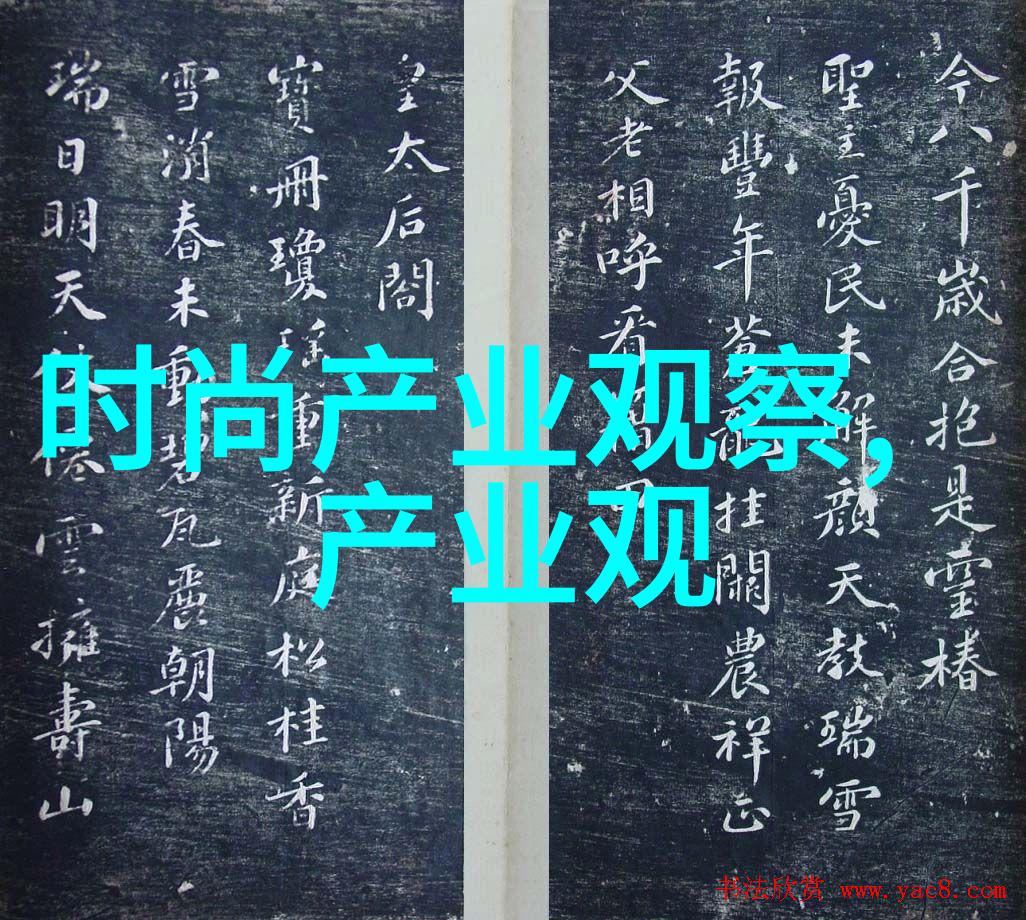 今八千歲合抱是靈椿
聖主憂民未解顏天教瑞雪
報豐年蒼龍挂闕農祥正
父老相呼看田
皇太后閣
寶冊瓊瑤重新庭松桂香
雪消春未動碧瓦麗朝陽
瑞日明天仗僊雲擁壽山
时尚产业观察,
产业观
书法欣赏 www.yac8.com